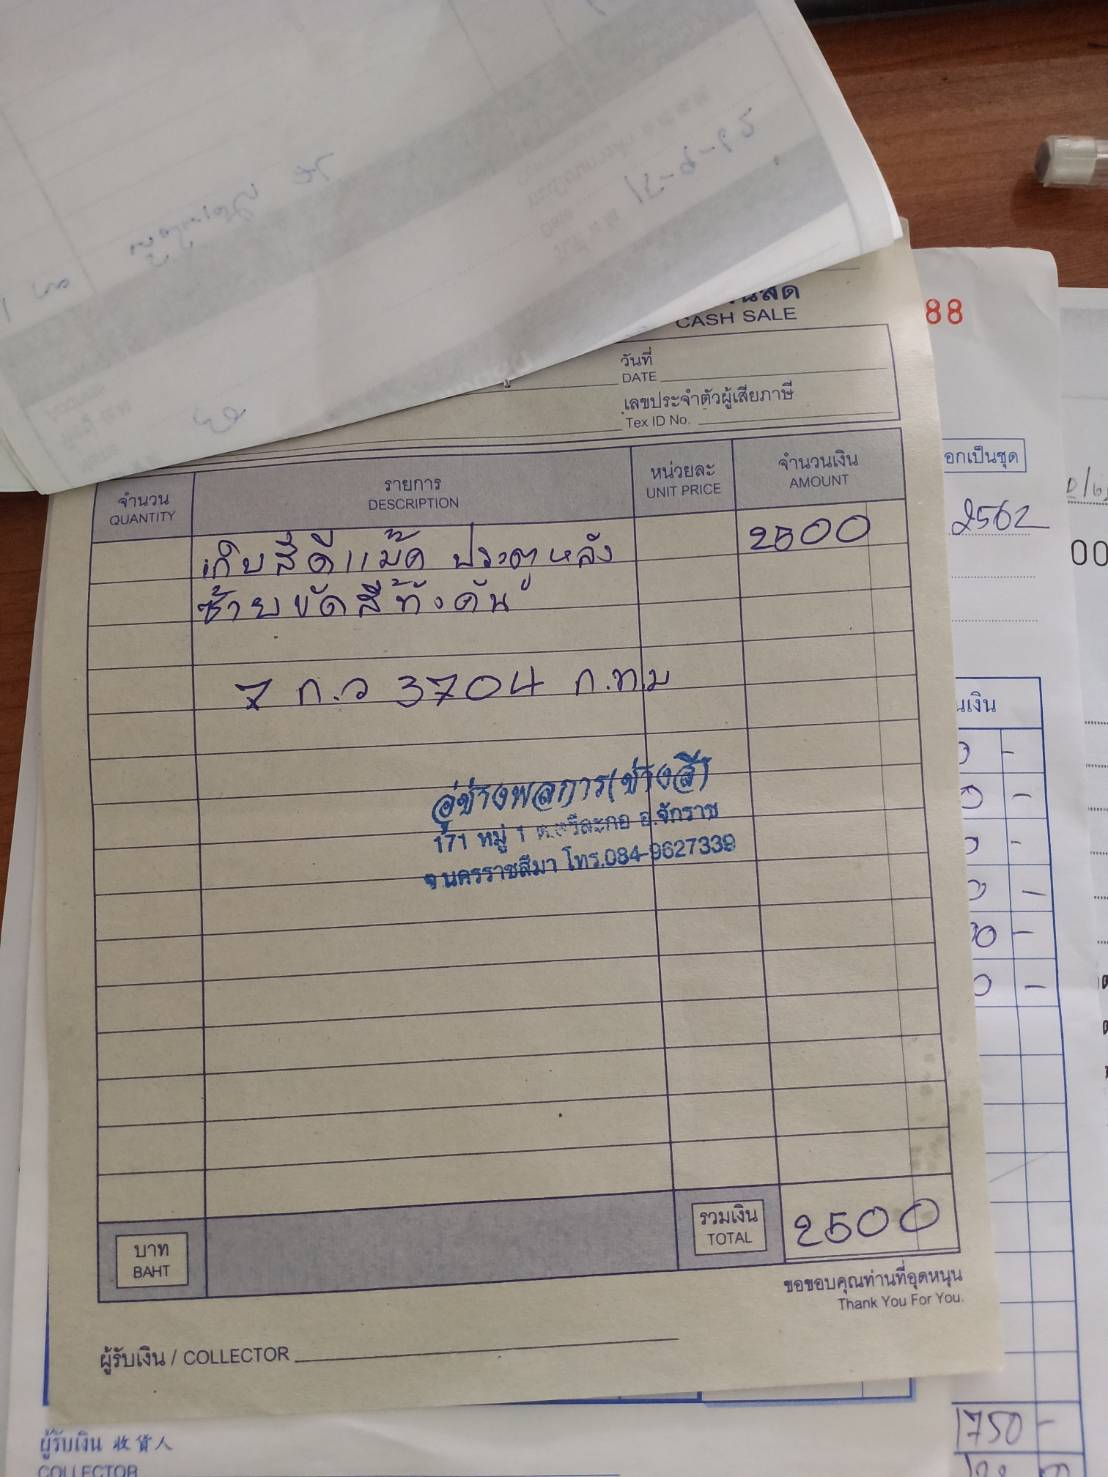 29-6-21
88
CASH SALE
วันที่
DATE
เลขประจำตัวผู้เสียภาษี
Tex ID No.
อกเป็นชุด
2562
00
จำนวน
QUANTITY
รายการ
DESCRIPTION
หน่วยละ
UNIT PRICE
จำนวนเงิน
AMOUNT
เก็บสีดีแม๊ค ประตูหลัง 2500
ซ้ายขัดสีทั้งคัน
7 ก.ว 3704 ก.ท.ม
นเงิน
อู่ช่างพลการ(ช่างสี)
171 หมู่ 1 อ.จักราช
จ.นครราชสีมา โทร.084-9627339
บาท
BAHT
รวมเงิน
TOTAL
2500
ขอขอบคุณท่านที่อุดหนุน
Thank You For You.
ผู้รับเงิน / COLLECTOR
1750 -
ผู้รับเงิน 收貨人
COLLECTOR